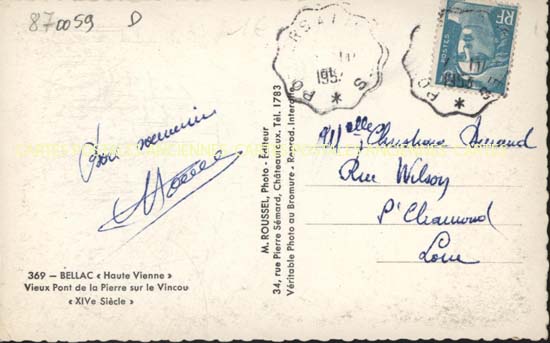 870059 D
RF
POSTES
1953
1953
Bon souvenir
369 — BELLAC « Haute Vienne »
Vieux Pont de la Pierre sur le Vincou
« XIVe Siècle »
M. ROUSSEL, Photo - Editeur
34, rue Pierre Sémard, Châteauroux. Tél. 1783
Véritable Photo au Bromure - Reprod. Interdite
Mlle Christiane
Rue Wilson
St Chamond
Loire